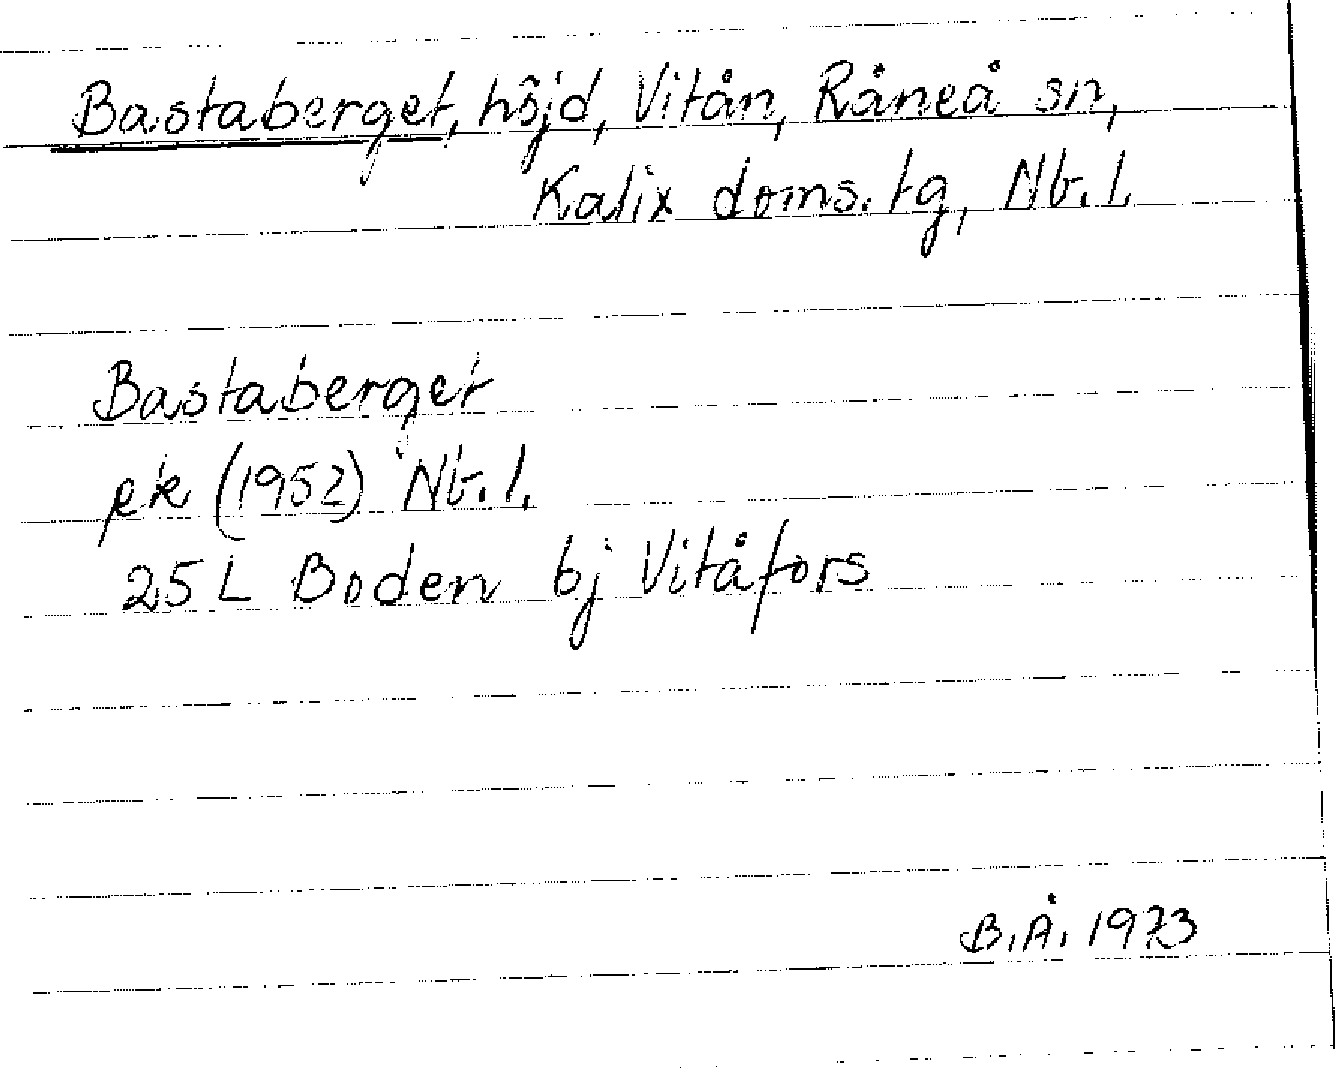 Bastaberget, höjd, Vitån, Råneå sn,
Kalix doms. tg, Nb. l.
Bastaberget
ek (1952) Nb. l.
25 L Boden bj Vitåfors
B.Å. 1973